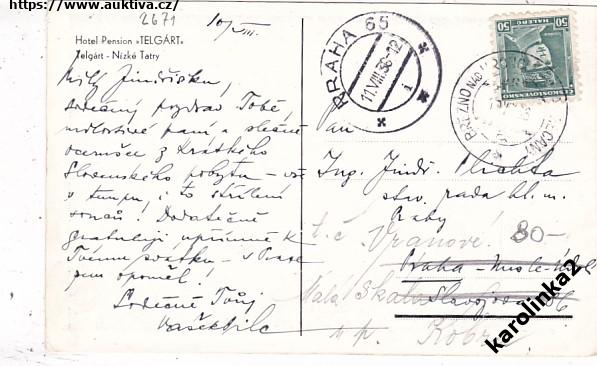 https://www.auktiva.cz/
2671
10/VIII.
Hotel Pension »TELGÁRT«
Telgárt - Nízké Tatry
Milý Jindřišku,
srdečný pozdrav Tobě,
milostivé paní a slečně
z krátkého
Slovenského pobytu – vše
v tempu, i to střílení
Dodatečně
gratuluji upřímně k
Tvému svátku – v Praze
jsem opoměl!
Srdečně Tvůj
PRAHA 65
11.VIII.38-12
i
50 HALÉŘŮ 50
ČESKOSLOVENSKO
Pan
Ing. Jindř.
stav. rada hl. m.
Prahy
t. č. Vranové
80-
Praha
Malá Skála
p.
karolinka2